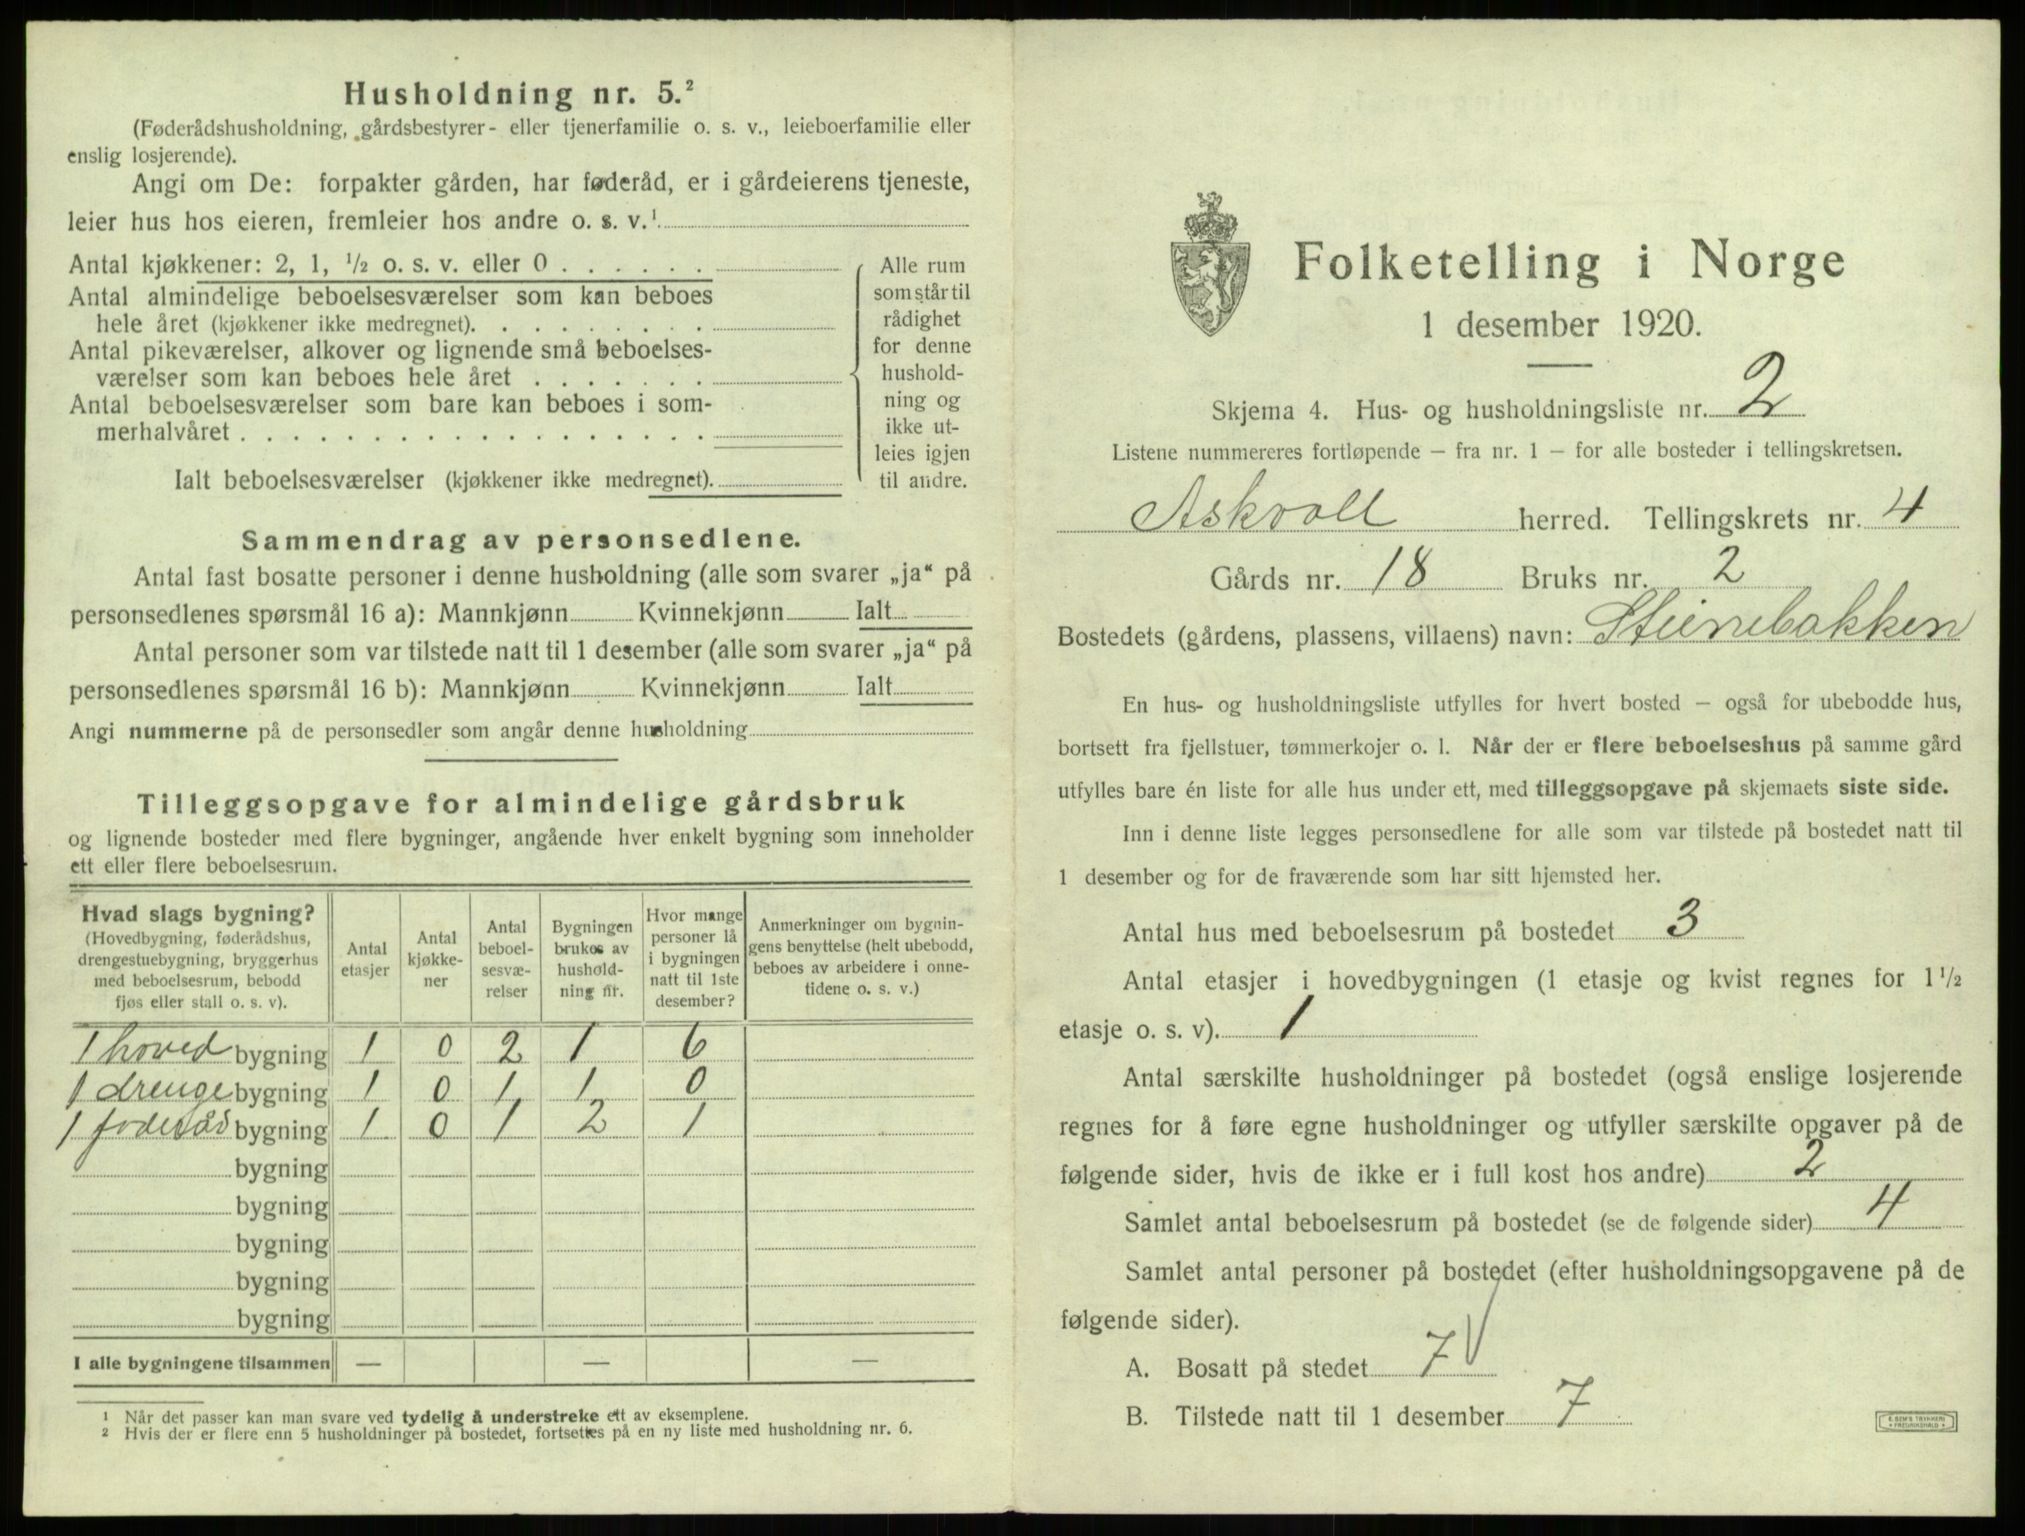 Husholdning nr. 5.²
(Føderådshusholdning, gårdsbestyrer- eller tjenerfamilie o. s. v., leieboerfamilie eller
enslig losjerende).
Angi om De: forpakter gården, har føderåd, er i gårdeierens tjeneste,
leier hus hos eieren, fremleier hos andre o. s. v.¹
Antal kjøkkener: 2, 1, ½ o. s. v. eller 0 . . . . . .
Antal almindelige beboelsesværelser som kan beboes
hele året (kjøkkener ikke medregnet). . . . . . . . .
Antal pikeværelser, alkover og lignende små beboelses-
værelser som kan beboes hele året . . . . . . .
Antal beboelsesværelser som bare kan beboes i som-
merhalvåret . . . . . . . . . . . . . . . . . .
Ialt beboelsesværelser (kjøkkener ikke medregnet).
Alle rum
som står til
rådighet
for denne
hushold-
ning og
ikke ut-
leies igjen
til andre.
Sammendrag av personsedlene.
Antal fast bosatte personer i denne husholdning (alle som svarer „ja“ på
personsedlenes spørsmål 16 a): Mannkjønn Kvinnekjønn Ialt
Antal personer som var tilstede natt til 1 desember (alle som svarer „ja“ på
personsedlenes spørsmål 16 b): Mannkjønn Kvinnekjønn Ialt
Angi nummerne på de personsedler som angår denne husholdning
Tilleggsopgave for almindelige gårdsbruk
og lignende bosteder med flere bygninger, angående hver enkelt bygning som inneholder
ett eller flere beboelsesrum.
Hvad slags bygning?
(Hovedbygning, føderådshus,
drengestuebygning, bryggerhus
med beboelsesrum, bebodd
fjøs eller stall o. s. v).
Antal
etasjer
Antal
kjøkke-
ner
Antal
beboel-
sesvæ-
relser
Bygningen
brukes av
hushold-
ning nr.
Hvor mange
personer lå
i bygningen
natt til 1ste
desember?
Anmerkninger om bygnin-
gens benyttelse (helt ubebodd,
beboes av arbeidere i onne-
tidene o. s. v.)
1 hoved bygning 1 0 2 1 6
1 drenge bygning 1 0 1 1 0
1 foderåd bygning 1 0 1 2 1
bygning
bygning
bygning
bygning
bygning
I alle bygningene tilsammen — — —
¹ Når det passer kan man svare ved tydelig å understreke ett av eksemplene.
² Hvis der er flere enn 5 husholdninger på bostedet, fortsettes på en ny liste med husholdning nr. 6.
Folketelling i Norge
1 desember 1920.
Skjema 4. Hus- og husholdningsliste nr. 2
Listene nummereres fortløpende – fra nr. 1 – for alle bosteder i tellingskretsen.
Askvoll herred. Tellingskrets nr. 4
Gårds nr. 18 Bruks nr. 2
Bostedets (gårdens, plassens, villaens) navn: Steinebakken
En hus- og husholdningsliste utfylles for hvert bosted – også for ubebodde hus,
bortsett fra fjellstuer, tømmerkojer o. l. Når der er flere beboelseshus på samme gård
utfylles bare én liste for alle hus under ett, med tilleggsopgave på skjemaets siste side.
Inn i denne liste legges personsedlene for alle som var tilstede på bostedet natt til
1 desember og for de fraværende som har sitt hjemsted her.
Antal hus med beboelsesrum på bostedet 3
Antal etasjer i hovedbygningen (1 etasje og kvist regnes for 1½
etasje o. s. v). 1
Antal særskilte husholdninger på bostedet (også enslige losjerende
regnes for å føre egne husholdninger og utfyller særskilte opgaver på de
følgende sider, hvis de ikke er i full kost hos andre) 2
Samlet antal beboelsesrum på bostedet (se de følgende sider) 4
Samlet antal personer på bostedet (efter husholdningsopgavene på de
følgende sider).
A. Bosatt på stedet 7 V
B. Tilstede natt til 1 desember 7
E. SEM'S TRYKKERI
FREDRIKSHALD